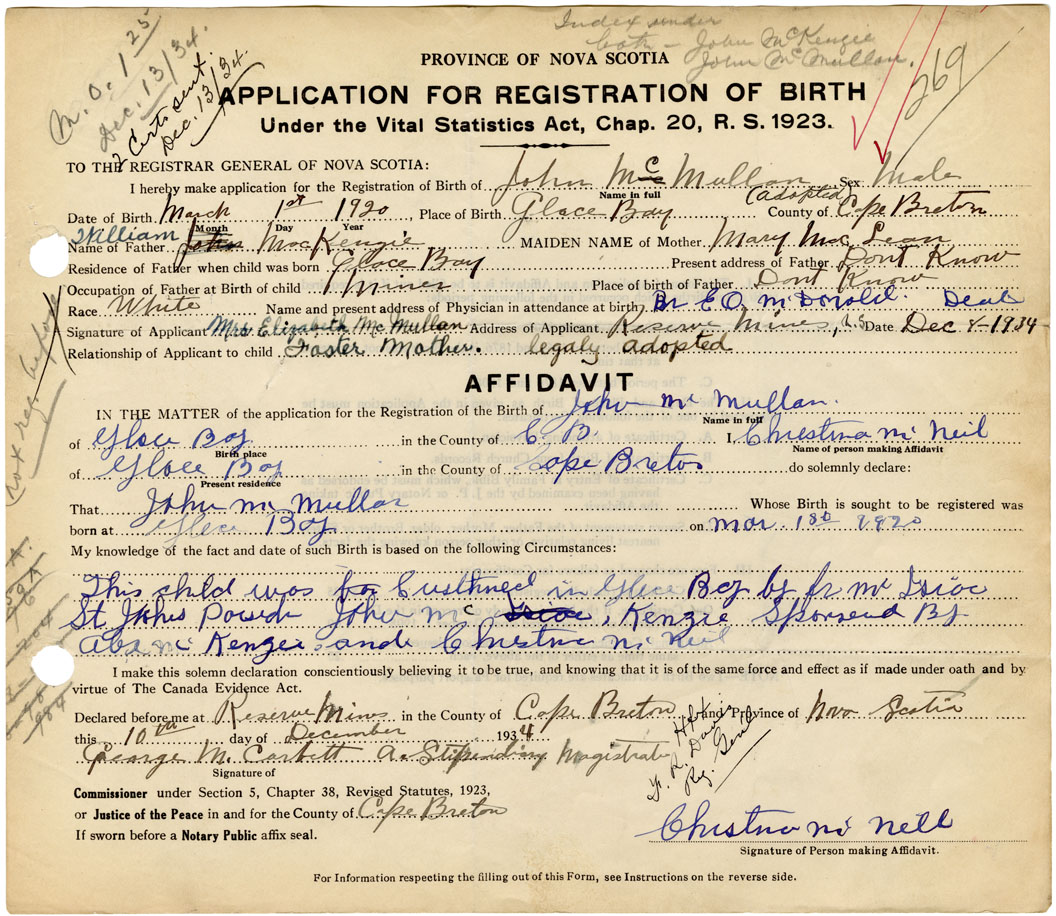 Index under
both - John McKenzie
John McMullan.
M.O. 1.25
Dec. 13/34.
2 Certs sent.
Dec. 13/34.
269
PROVINCE OF NOVA SCOTIA
APPLICATION FOR REGISTRATION OF BIRTH
Under the Vital Statistics Act, Chap. 20, R. S. 1923.
TO THE REGISTRAR GENERAL OF NOVA SCOTIA:
I hereby make application for the Registration of Birth of John Mc Mullan Sex Male
Name in full
(adopted)
Date of Birth March 1st 1920, Place of Birth Glace Bay County of Cape Breton
Month Day Year
William
Name of Father John MacKenzie MAIDEN NAME of Mother Mary Mac Lean
Residence of Father when child was born Glace Bay Present address of Father Dont Know
Occupation of Father at Birth of child Miner Place of birth of Father Dont Know
Race White Name and present address of Physician in attendance at birth Dr E O McDonald. Dead
Signature of Applicant Mrs Elizabeth McMullan Address of Applicant Reserve Mines, N.S Date Dec 8-1934-
Relationship of Applicant to child Foster Mother. legaly adopted
not reg. before
AFFIDAVIT
IN THE MATTER of the application for the Registration of the Birth of John Mc Mullan.
Name in full
of Glace Bay in the County of C B. I, Chrestina Mc Neil
Birth place Name of person making Affidavit
of Glace Bay in the County of Cape Breton do solemnly declare:
Present residence
That John Mc Mullan Whose Birth is sought to be registered was
born at Glace Bay on Mar. 1st 1920
My knowledge of the fact and date of such Birth is based on the following Circumstances:
This child was in Glace Bay by fr Mc
St Johns John Mc Kenzie By
Mc Kenzie and Chrestina Mc Neil
I make this solemn declaration conscientiously believing it to be true, and knowing that it is of the same force and effect as if made under oath and by
virtue of The Canada Evidence Act.
Declared before me at Reserve Mines in the County of Cape Breton and Province of Nova Scotia
this 10th day of December 1934
George M. Corbett A Stipendiary Magistrate
Signature of
Hfx
F. R. Davis
Reg. Genl
Commissioner under Section 5, Chapter 38, Revised Statutes, 1923,
or Justice of the Peace in and for the County of Cape Breton
If sworn before a Notary Public affix seal.
Chrestina Mc Neil
Signature of Person making Affidavit.
For Information respecting the filling out of this Form, see Instructions on the reverse side.